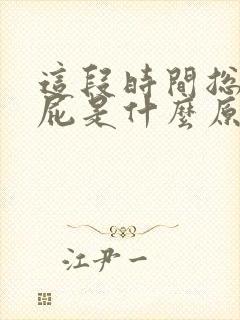 這段時間總
屁是什麼原
江尹一